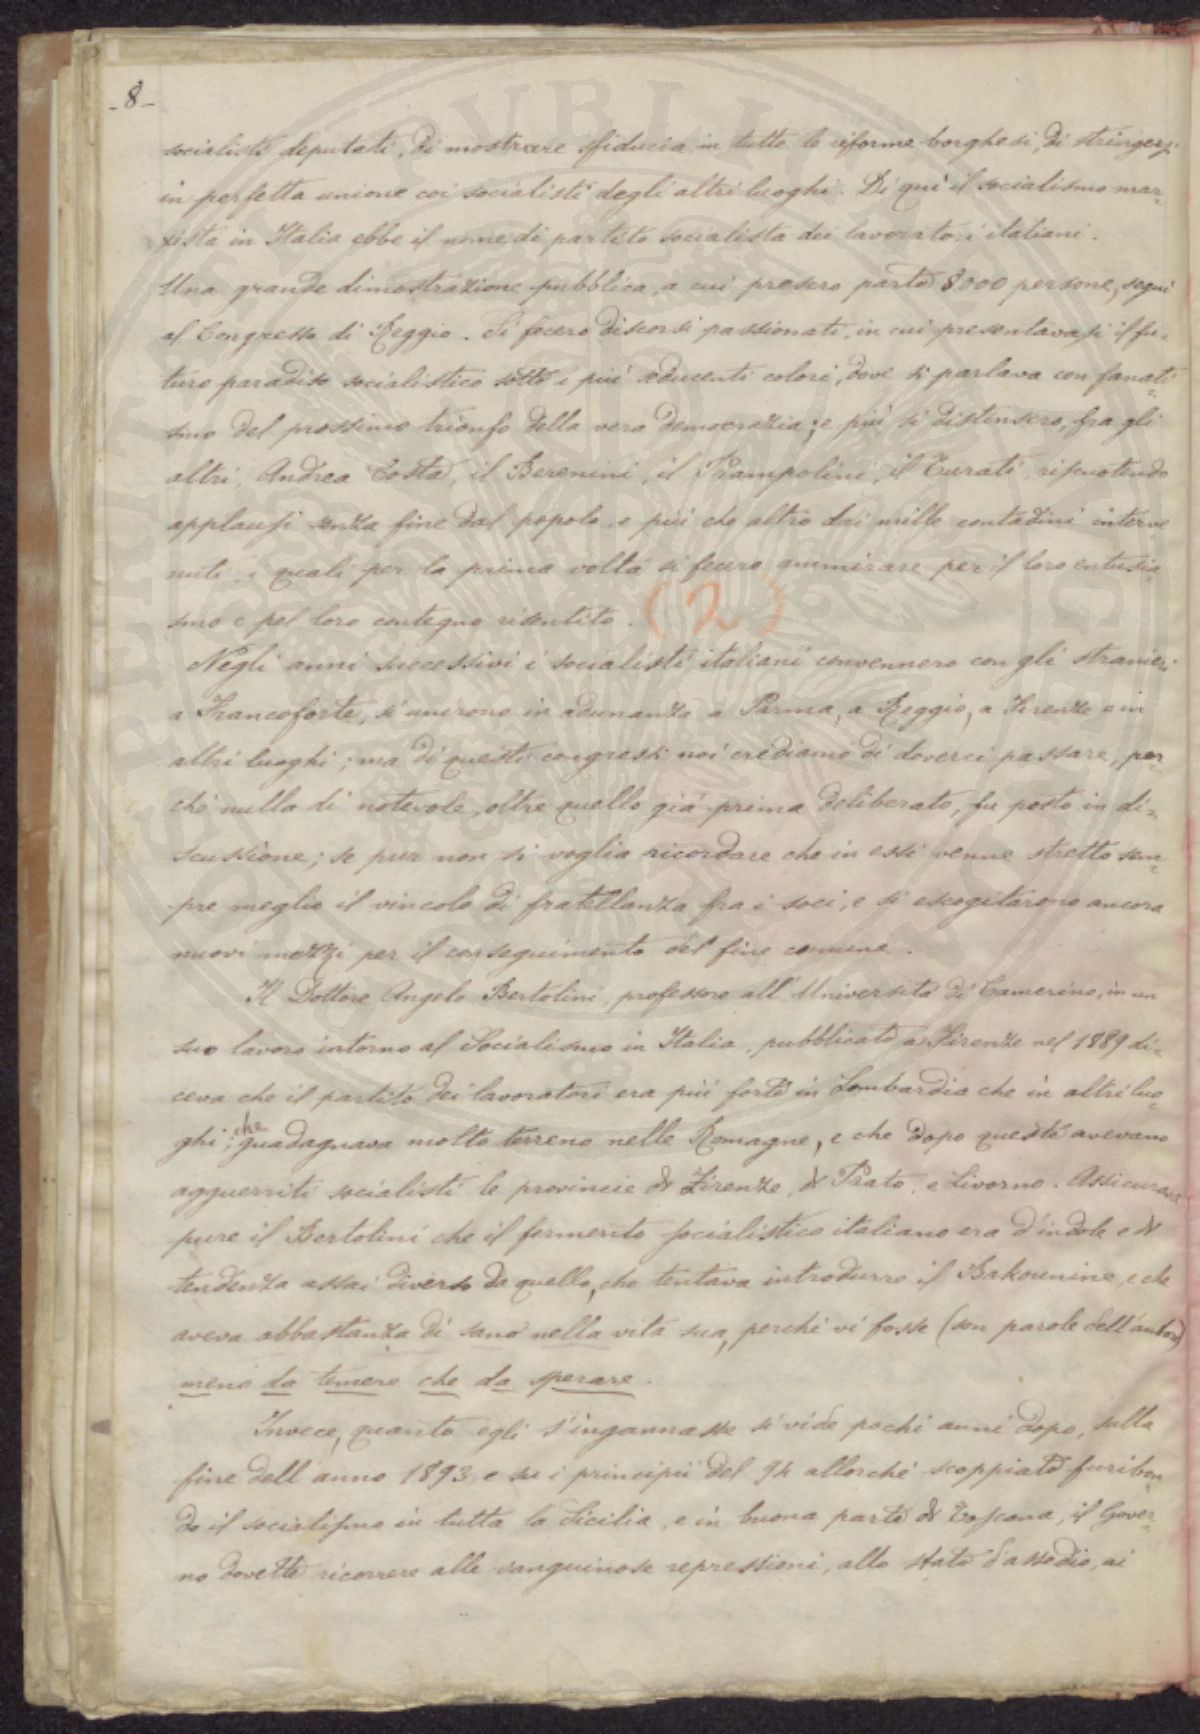 - 8 -
socialisti deputati, di mostrare sfiducia in tutte le riforme borghesi, di stringersi
in perfetta unione coi socialisti degli altri luoghi. Di qui il socialismo mar=
xista in Italia ebbe il nome di partito socialista dei lavoratori italiani.
Una grande dimostrazione pubblica, a cui presero parte 8000 persone, seguì
al Congresso di Reggio. Si fecero discorsi passionati, in cui presentavasi il fu=
turo paradiso socialistico sotto i più seducenti colori, dove si parlava con fanati=
smo del prossimo trionfo della vera democrazia; e più si distinsero, fra gli
altri, Andrea Costa, il Berenini, il Prampolini, il Turati, riscuotendo
applausi senza fine dal popolo, e più che altro dai mille contadini interve
nuti, i quali per la prima volta si fecero ammirare per il loro entusia=
smo e pel loro contegno risentito. (2)
Negli anni successivi i socialisti italiani convennero con gli stranieri
a Francoforte, si unirono in adunanza a Parma, a Reggio, a Firenze e in
altri luoghi; ma di questi congressi noi crediamo di doverci passare, per=
chè nulla di notevole, oltre quello già prima deliberato, fu posto in di=
scussione; se pur non si voglia ricordare che in essi venne stretto sem=
pre meglio il vincolo di fratellanza fra i soci, e si escogitarono ancora
nuovi mezzi per il conseguimento del fine comune.
Il Dottore Angelo Bertolini, professore all'Università di Camerino, in un
suo lavoro intorno al Socialismo in Italia, pubblicato a Firenze nel 1889 di=
ceva che il partito dei lavoratori era più forte in Lombardia che in altri luo=
ghi; che guadagnava molto terreno nelle Romagne, e che dopo queste avevano
agguerriti socialisti le provincie di Firenze, di Prato, e Livorno. Assicurava
pure il Bertolini che il fermento socialistico italiano era d'indole e di
tendenza assai diverso da quello, che tentava introdurre il Bakounine, e che
aveva abbastanza di sano nella vita sua, perchè vi fosse (son parole dell'autore)
meno da temere che da sperare.
Invece, quanto egli s'ingannasse si vide pochi anni dopo, sulla
fine dell'anno 1893, e su i principii del 94 allorchè scoppiato furibon=
do il socialismo in tutta la Sicilia, e in buona parte di Toscana, il Gover=
no dovette ricorrere alle sanguinose repressioni, allo stato d'assedio, ai